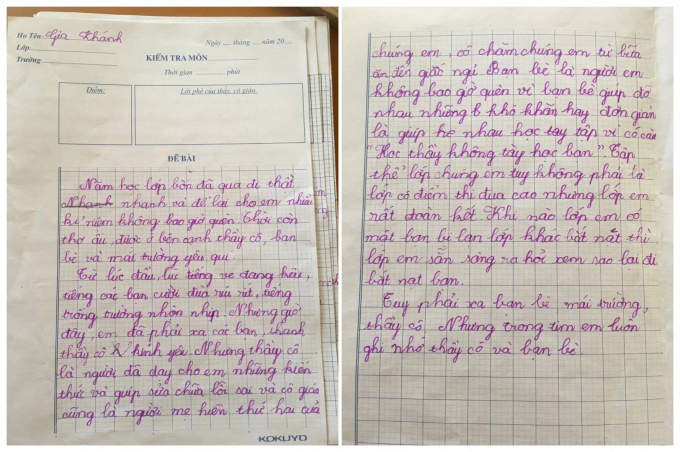 Họ Tên: Gia Khánh
Lớp:
Trường:
Ngày .... tháng .... năm 20....
KIỂM TRA MÔN
Thời gian phút
Điểm:
Lời phê của thầy, cô giáo.
ĐỀ BÀI
Năm học lớp bốn đã qua đi thật
Nhanh nhanh và để lại cho em nhiều
kỉ niệm không bao giờ quên. Thời còn
thơ ấu, được ở bên cạnh thầy cô, bạn
bè và mái trường yêu quí.
Từ lúc đầu, lúc tiếng ve đang kêu,
tiếng các bạn cười đùa ríu rít, tiếng
trống trường nhộn nhịp. Nhưng giờ
đây, em đã phải xa các bạn, thanh
thầy cô kính yêu. Nhưng thầy cô
là người đã dạy cho em những kiến
thức và giúp sửa chữa lỗi sai và cô giáo
cũng là người mẹ hiền thứ hai của
KOKUYO
chúng em, cô chăm chúng em từ bữa
ăn đến giấc ngủ. Bạn bè là người em
không bao giờ quên vì bạn bè giúp đỡ
nhau những khó khăn hay đơn giản
là giúp nhau học tập vì có câu
"Học thầy không tày học bạn". Tập
thể lớp chúng em tuy không phải là
lớp có điểm thi đua cao nhưng lớp em
rất đoàn kết. Khi nào lớp em có
một bạn bị bạn lớp khác bắt nạt thì
lớp em sẵn sàng ra hỏi xem sao lại đi
bắt nạt bạn.
Tuy phải xa bạn bè mái trường,
thầy cô. Nhưng trong tim em luôn
ghi nhớ thầy cô và bạn bè.